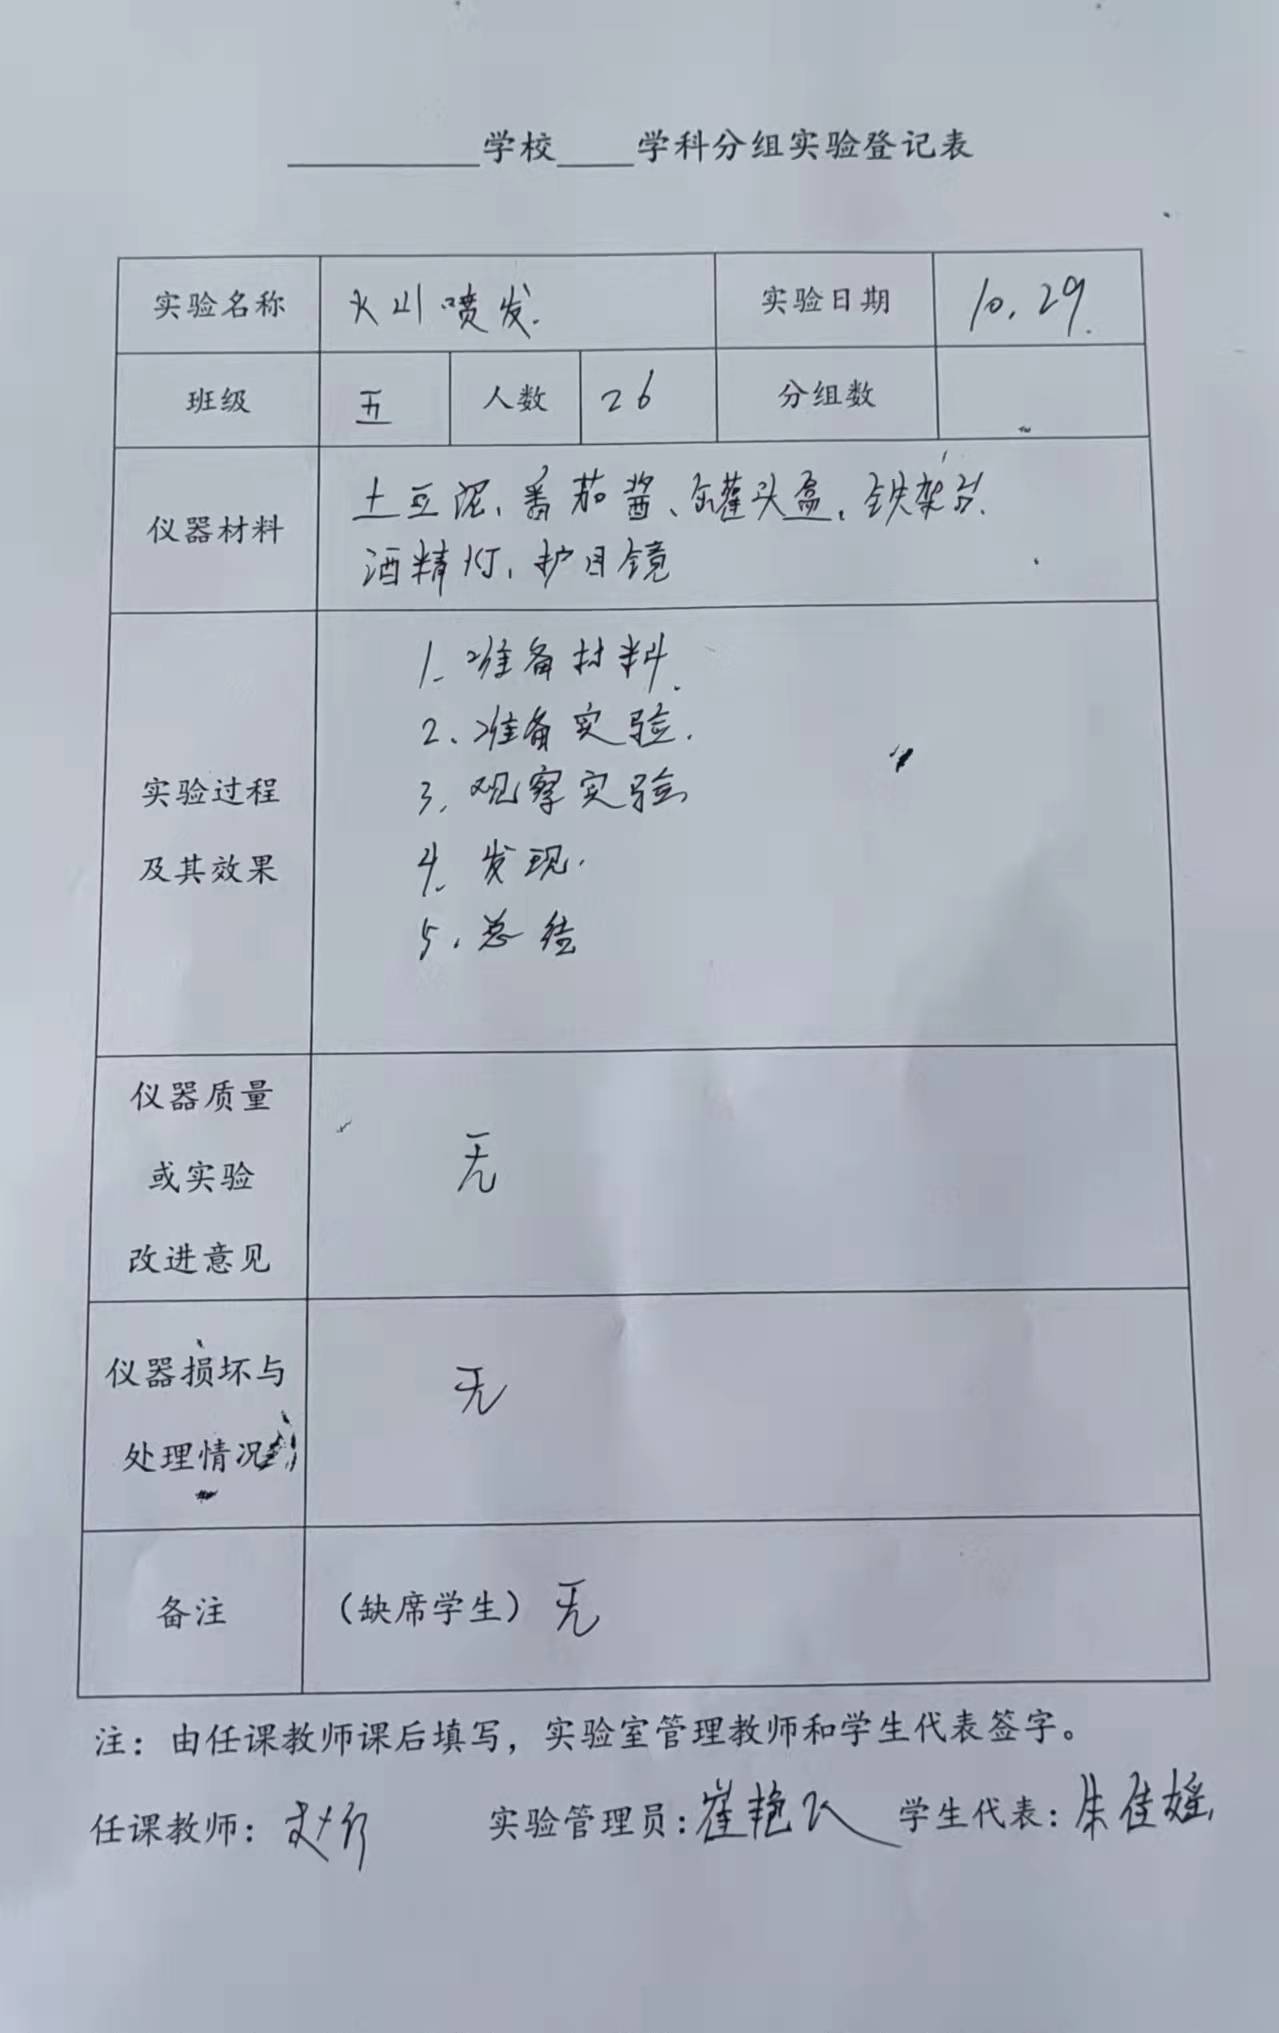 __________学校____学科分组实验登记表
实验名称 火山喷发. 实验日期 10.29.
班级 五 人数 26 分组数
仪器材料 土豆泥、番茄酱、罐头盒、铁架台、
酒精灯、护目镜
实验过程
及其效果
1. 准备材料.
2、准备实验.
3、观察实验
4、发现.
5、总结
仪器质量
或实验
改进意见
无
仪器损坏与
处理情况
无
备注 （缺席学生）无
注：由任课教师课后填写，实验室管理教师和学生代表签字。
任课教师： 实验管理员：崔艳 学生代表：朱佳瑶